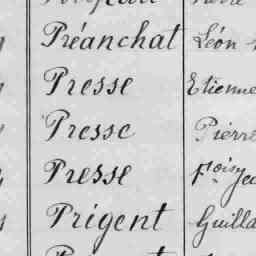 Préanchat Léon
Presse Etienne
Presse Pierre
Presse f.çois Jea
Prigent Guilla